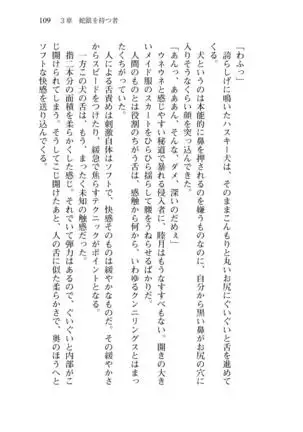 109 3章 蛇眼を持つ者
「わふっ」
誇らしげに鳴いたハスキー犬は、そのままこんもりと丸いお尻にぐいぐいと舌を進めてくる。
犬というのは本能的に鼻を押されるのを嫌うものなのに、自分から黒い鼻がお尻の穴に当りそうなくらい顔を突っ込んできた。
「あんっ、あああん、そんな、ダメ、深いのだめぇ」
ウネウネと感じやすい秘道で暴れる侵入者に、睦月はもうなすすべもない。開きの大きいメイド服のスカートをひらひら揺らして腰をうねらせるばかりだ。
人間のものとは役割のちがう舌は、感触から何から、いわゆるクンニリングスとはまったくちがっていた。
人による舌責めは刺激自体はソフトで、快感そのものは緩やかなものだ。その緩やかさからスピードをつけたり、緩急で焦らすテクニックがポイントとなる。
一方この犬の舌は、もう、まったく未知の触感だった。
指二本分の面積を柔らかくした感じ。それでいて弾力はあるので、ぐいぐいと内部がこじ開けられてしまう。そうしてこじ開けたあと、人の舌に似た柔らかさで、奥のほうへとソフトな快感を送り込んでくる。